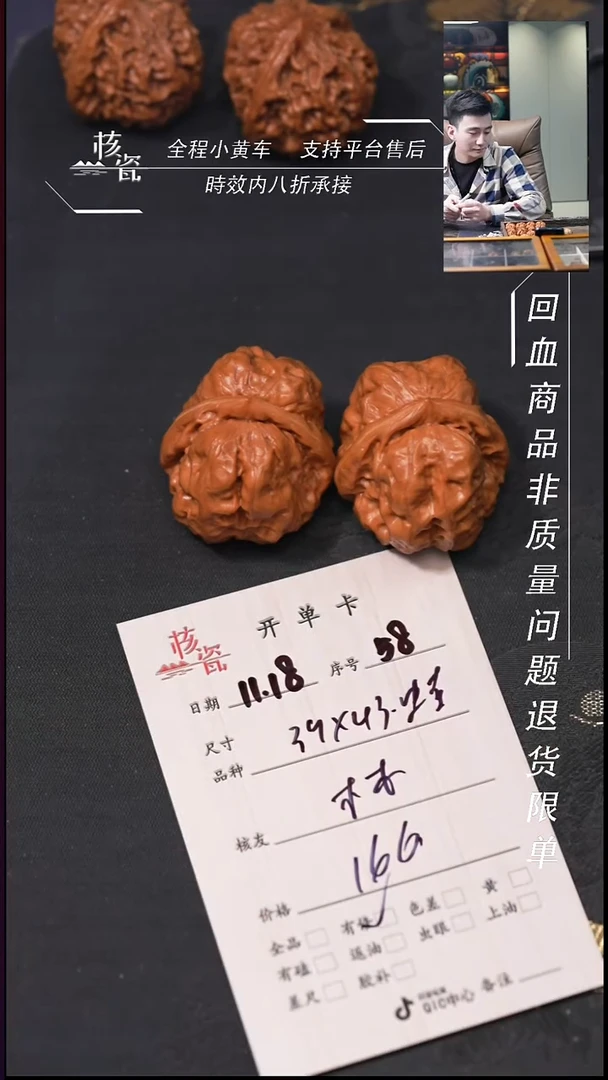 核瓷
全程小黄车 支持平台售后
時效内八折承接
回血商品非质量问题退货限单
核瓷
开单卡
日期 11.18 序号 58
尺寸 39X43.
品种
核友 林
价格 166
全品 有 色差 黄
有磕 返油 虫眼 上油
差尺 胶补
QIC中心 备注